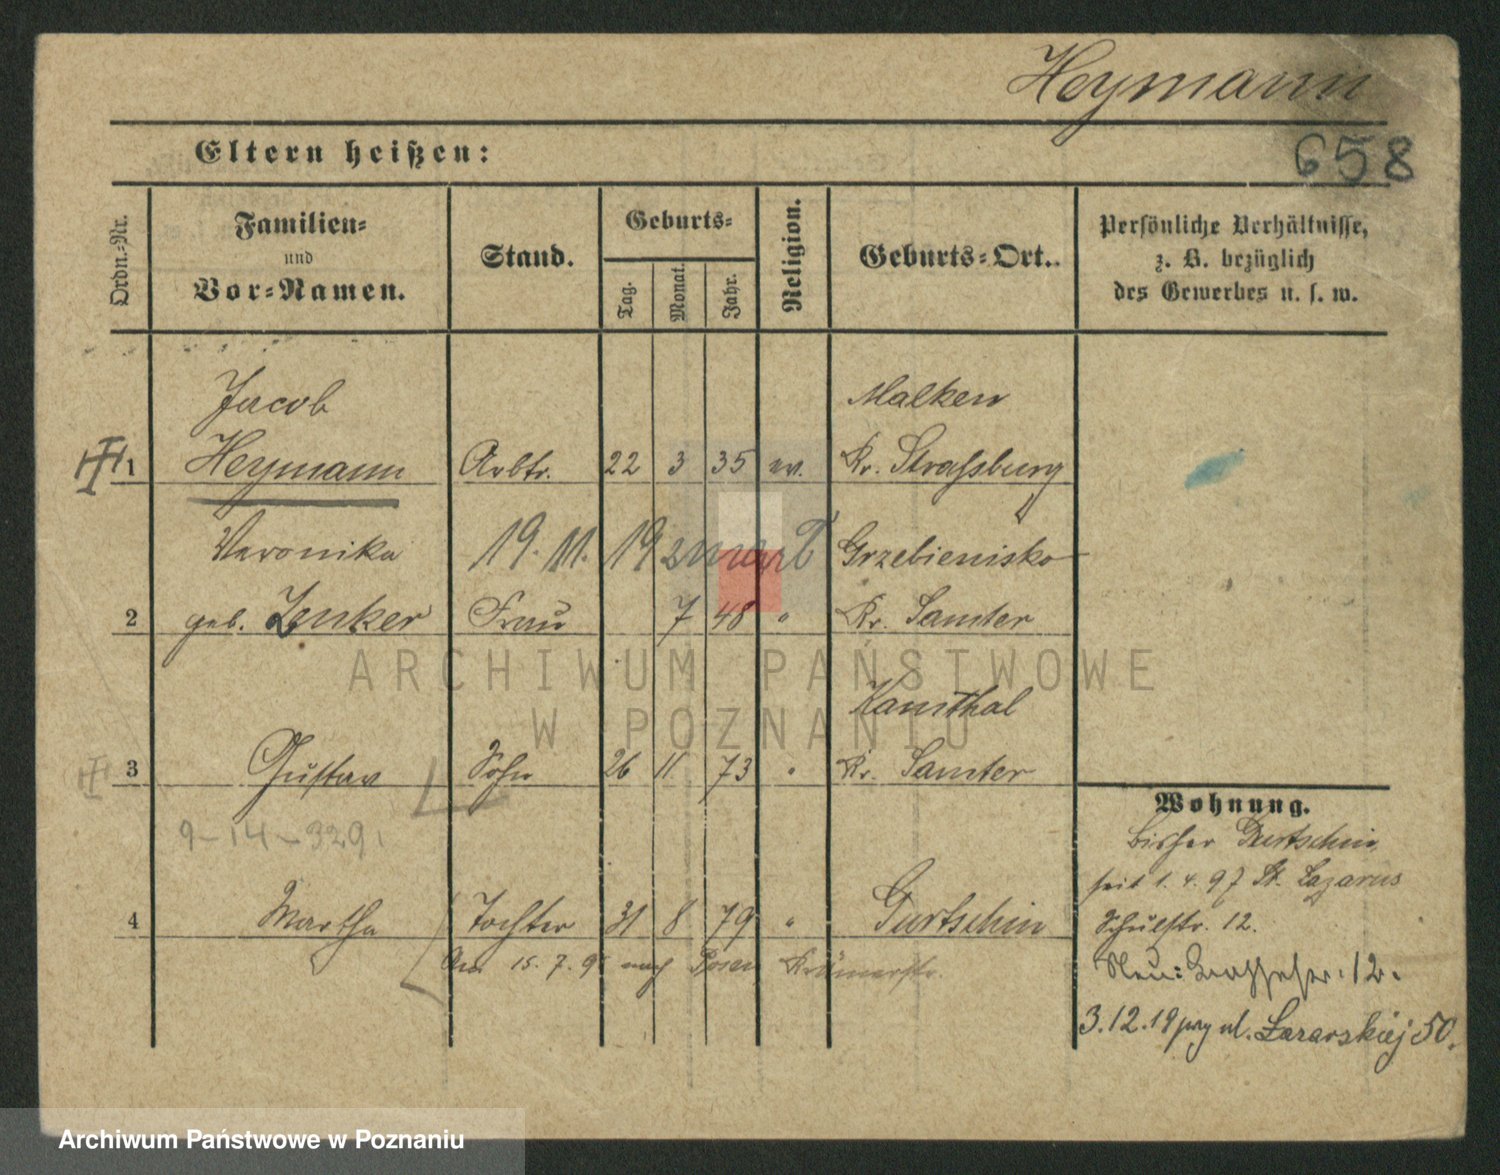 Heymann
658
Eltern heißen:
Ordn.-Nr.
Familien-
und
Vor-Namen.
Stand.
Geburts-
Tag.
Monat.
Jahr.
Religion.
Geburts-Ort.
Persönliche Verhältnisse,
z. B. bezüglich
des Gewerbes u. s. w.
Jacob
Malken
1 Heymann Arbtr. 22 3 35 ev. Kr. Strassburg
Veronika 19. 11. 19 zmarł Grzebienisko
2 geb. Zenker Frau 7 48 " Kr. Samter
Kamthal
3 Gustav Sohn 26 11. 73 " Kr. Samter
9-14-329.
4 Martha Tochter 31 8 79 " Gurtschin
15. 7. 9 nach Posen Krämerstr.
Wohnung.
bisher Gurtschin
seit 1. 4. 97 St. Lazarus
Schulstr. 12.
Neu: 12.
3.12.19 przy ul. Łazarskiej 50.
ARCHIWUM PAŃSTWOWE
W POZNANIU
Archiwum Państwowe w Poznaniu